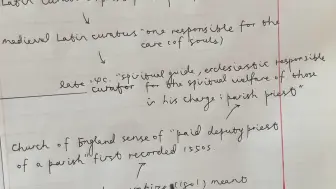 medieval Latin curatus "one responsible for the
care (of souls)
late 14c. "spiritual guide, ecclesiastic responsible
curator for the spiritual welfare of those
in his charge; parish priest"
Church of England sense of "paid deputy priest
of a parish" first recorded 1550s
meant